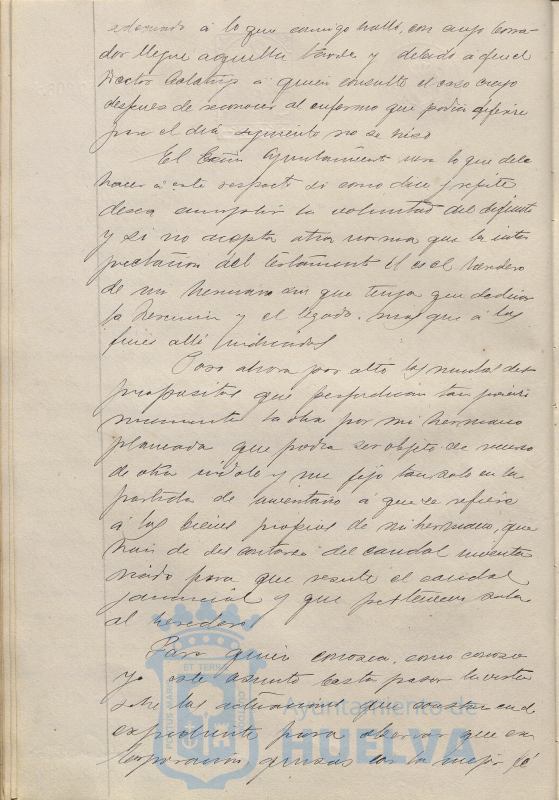 á lo que conmigo trató, con cuyo borra-
dor llegué aquella tarde y debido á que el
Doctor á quien consultó el caso creyó
después de reconocer al enfermo que podía diferirse
para el día siguiente no se hizo
El Excmo Ayuntamiento verá lo que debe
hacer á este respecto si como dice y repite
desea cumplir la voluntad del difunto
y si no acepta otra norma que la inter
pretación del testamento él es el heredero
de mi hermano sin que tenga que dedicar
la herencia y el legado mas que á los
fines allí indicados
Paso ahora por alto los
propositos que perjudican tan
la obra por mi hermano
planeada que podrá ser objeto de recurso
de otra índole y me fijo tan solo en la
partida de inventario á que se refiere
á los bienes propios de mi hermano, que
han de descontarse del caudal inventa
riado para que resulte el caudal
ganancial y que pertenecen solo
al heredero
Para quien conozca, como conozco
yo este asunto basta pasar la vista
sobre las actuaciones que constan en el
expediente para observar que esa
Corporacion, quizas con la mejor fé
PORTUS MARIS ET TERRAE CUSTODIA
Ayuntamiento de
HUELVA